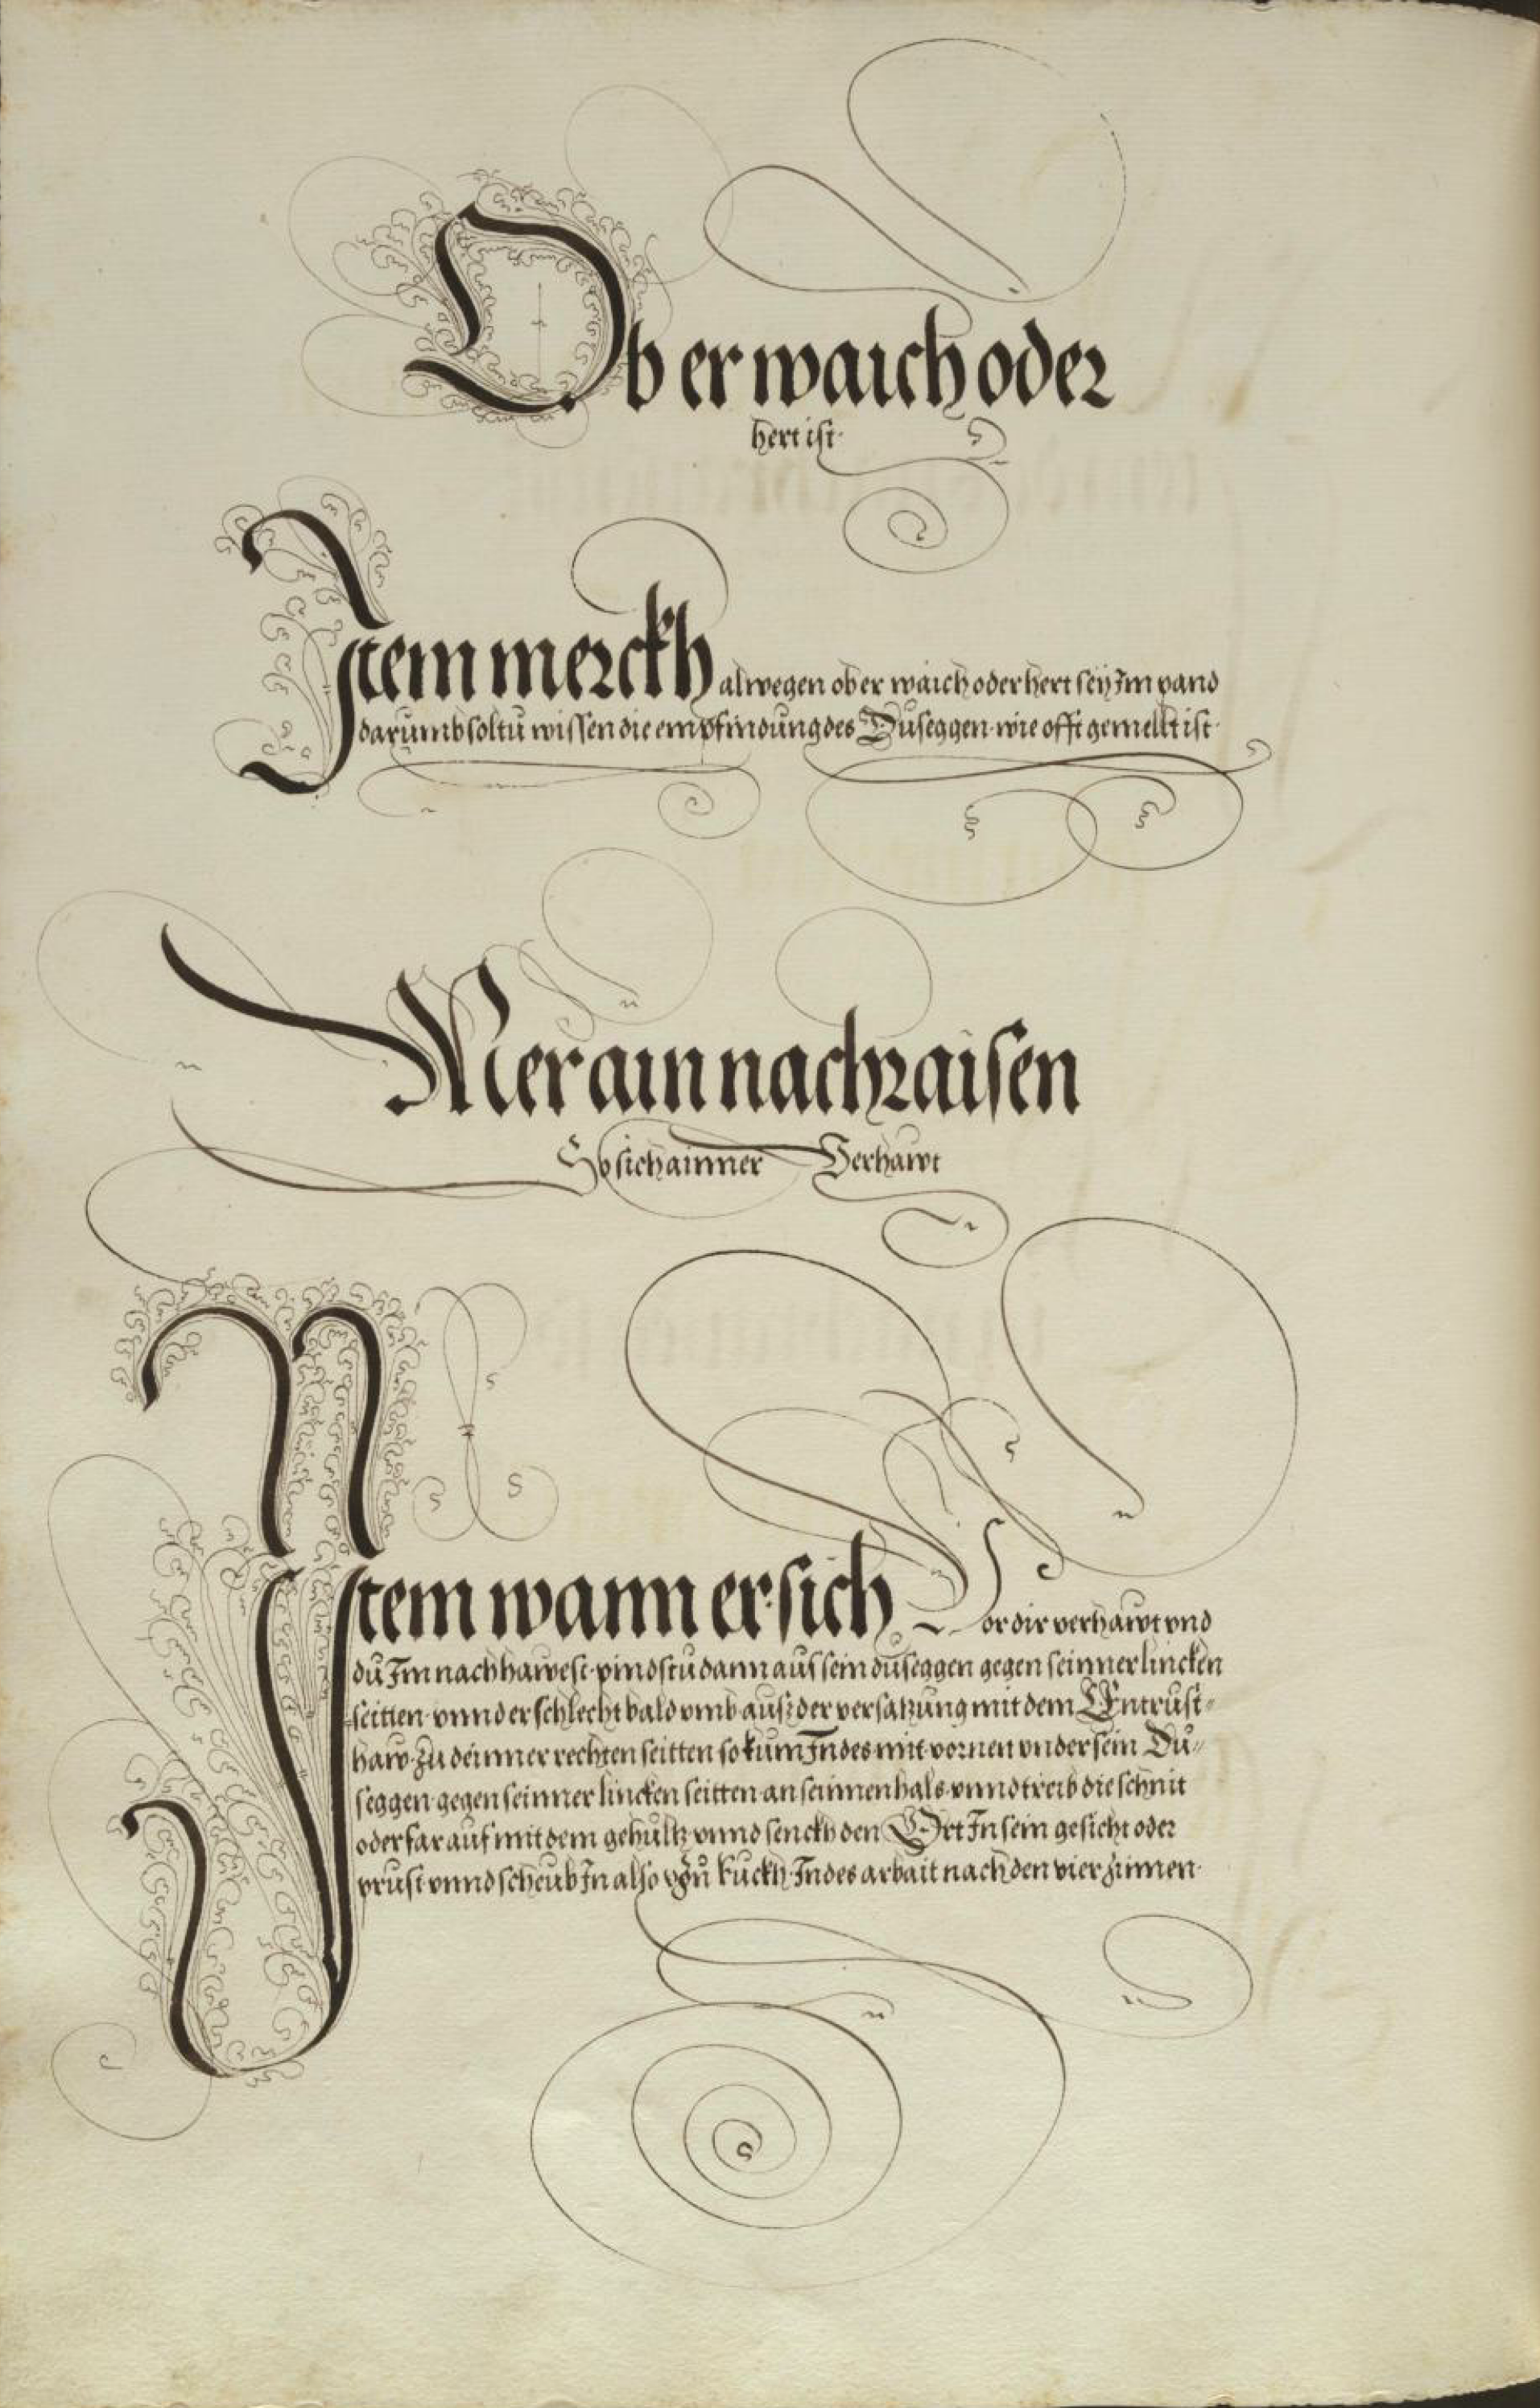 Ob er waich oder
hert ist·
Item merckh alwegen ob er waich oder hert seÿ Im pand
darumb soltu wissen die empfindung des Duseggen· wie offt gemellt ist·
Mer ain nachraisen
So sich ainner Verhawt
Item wann er sich Vor dir verhawt vnd
du Im nachhawest· pindstu dann auf sein duseggen gegen seinner lincken
seitten· vnnd er schlecht bald vmb aufz der versatzung mit dem Entrust¬
haw· zu deinner rechten seitten so kum Indes mit vornen vnder sein Du¬
seggen· gegen seinner lincken seitten· an seinnen hals· vnnd treib die schnit
oder far auf mit dem gehultz vnnd senckh den Ort In sein gesicht oder
prust vnnd scheub In also zu Ruckh· Indes arbait nach den vier zinnen·